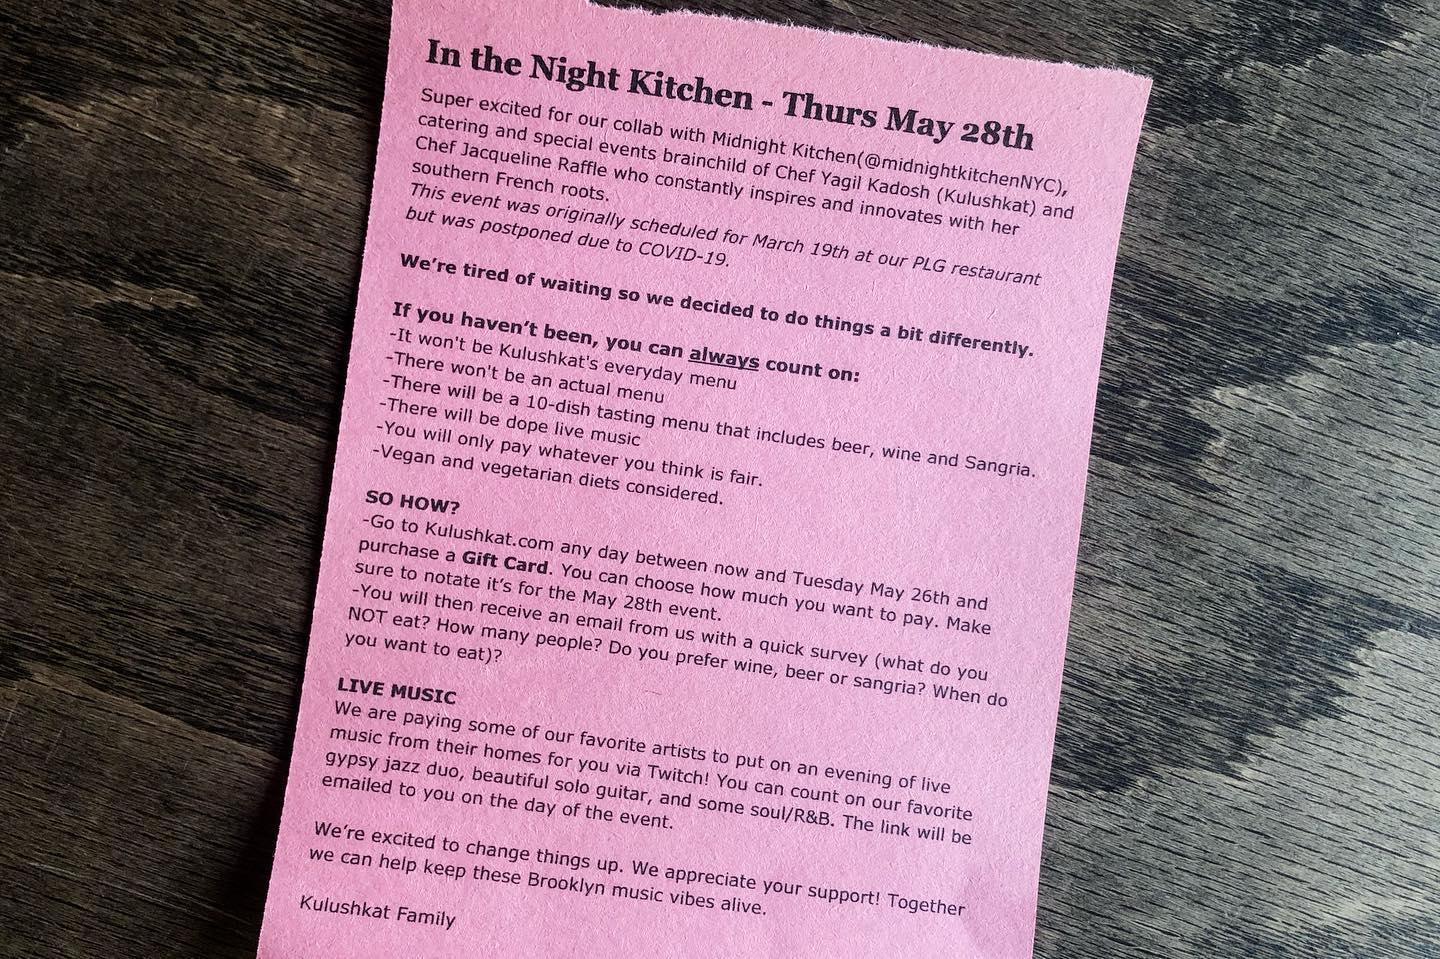 In the Night Kitchen - Thurs May 28th
Super excited for our collab with Midnight Kitchen(@midnightkitchenNYC),
catering and special events brainchild of Chef Yagil Kadosh (Kulushkat) and
Chef Jacqueline Raffle who constantly inspires and innovates with her
southern French roots.
This event was originally scheduled for March 19th at our PLG restaurant
but was postponed due to COVID-19.
We're tired of waiting so we decided to do things a bit differently.
If you haven't been, you can always count on:
-It won't be Kulushkat's everyday menu
-There won't be an actual menu
-There will be a 10-dish tasting menu that includes beer, wine and Sangria.
-There will be dope live music
-You will only pay whatever you think is fair.
-Vegan and vegetarian diets considered.
SO HOW?
-Go to Kulushkat.com any day between now and Tuesday May 26th and
purchase a Gift Card. You can choose how much you want to pay. Make
sure to notate it's for the May 28th event.
-You will then receive an email from us with a quick survey (what do you
NOT eat? How many people? Do you prefer wine, beer or sangria? When do
you want to eat)?
LIVE MUSIC
We are paying some of our favorite artists to put on an evening of live
music from their homes for you via Twitch! You can count on our favorite
gypsy jazz duo, beautiful solo guitar, and some soul/R&B. The link will be
emailed to you on the day of the event.
We're excited to change things up. We appreciate your support! Together
we can help keep these Brooklyn music vibes alive.
Kulushkat Family